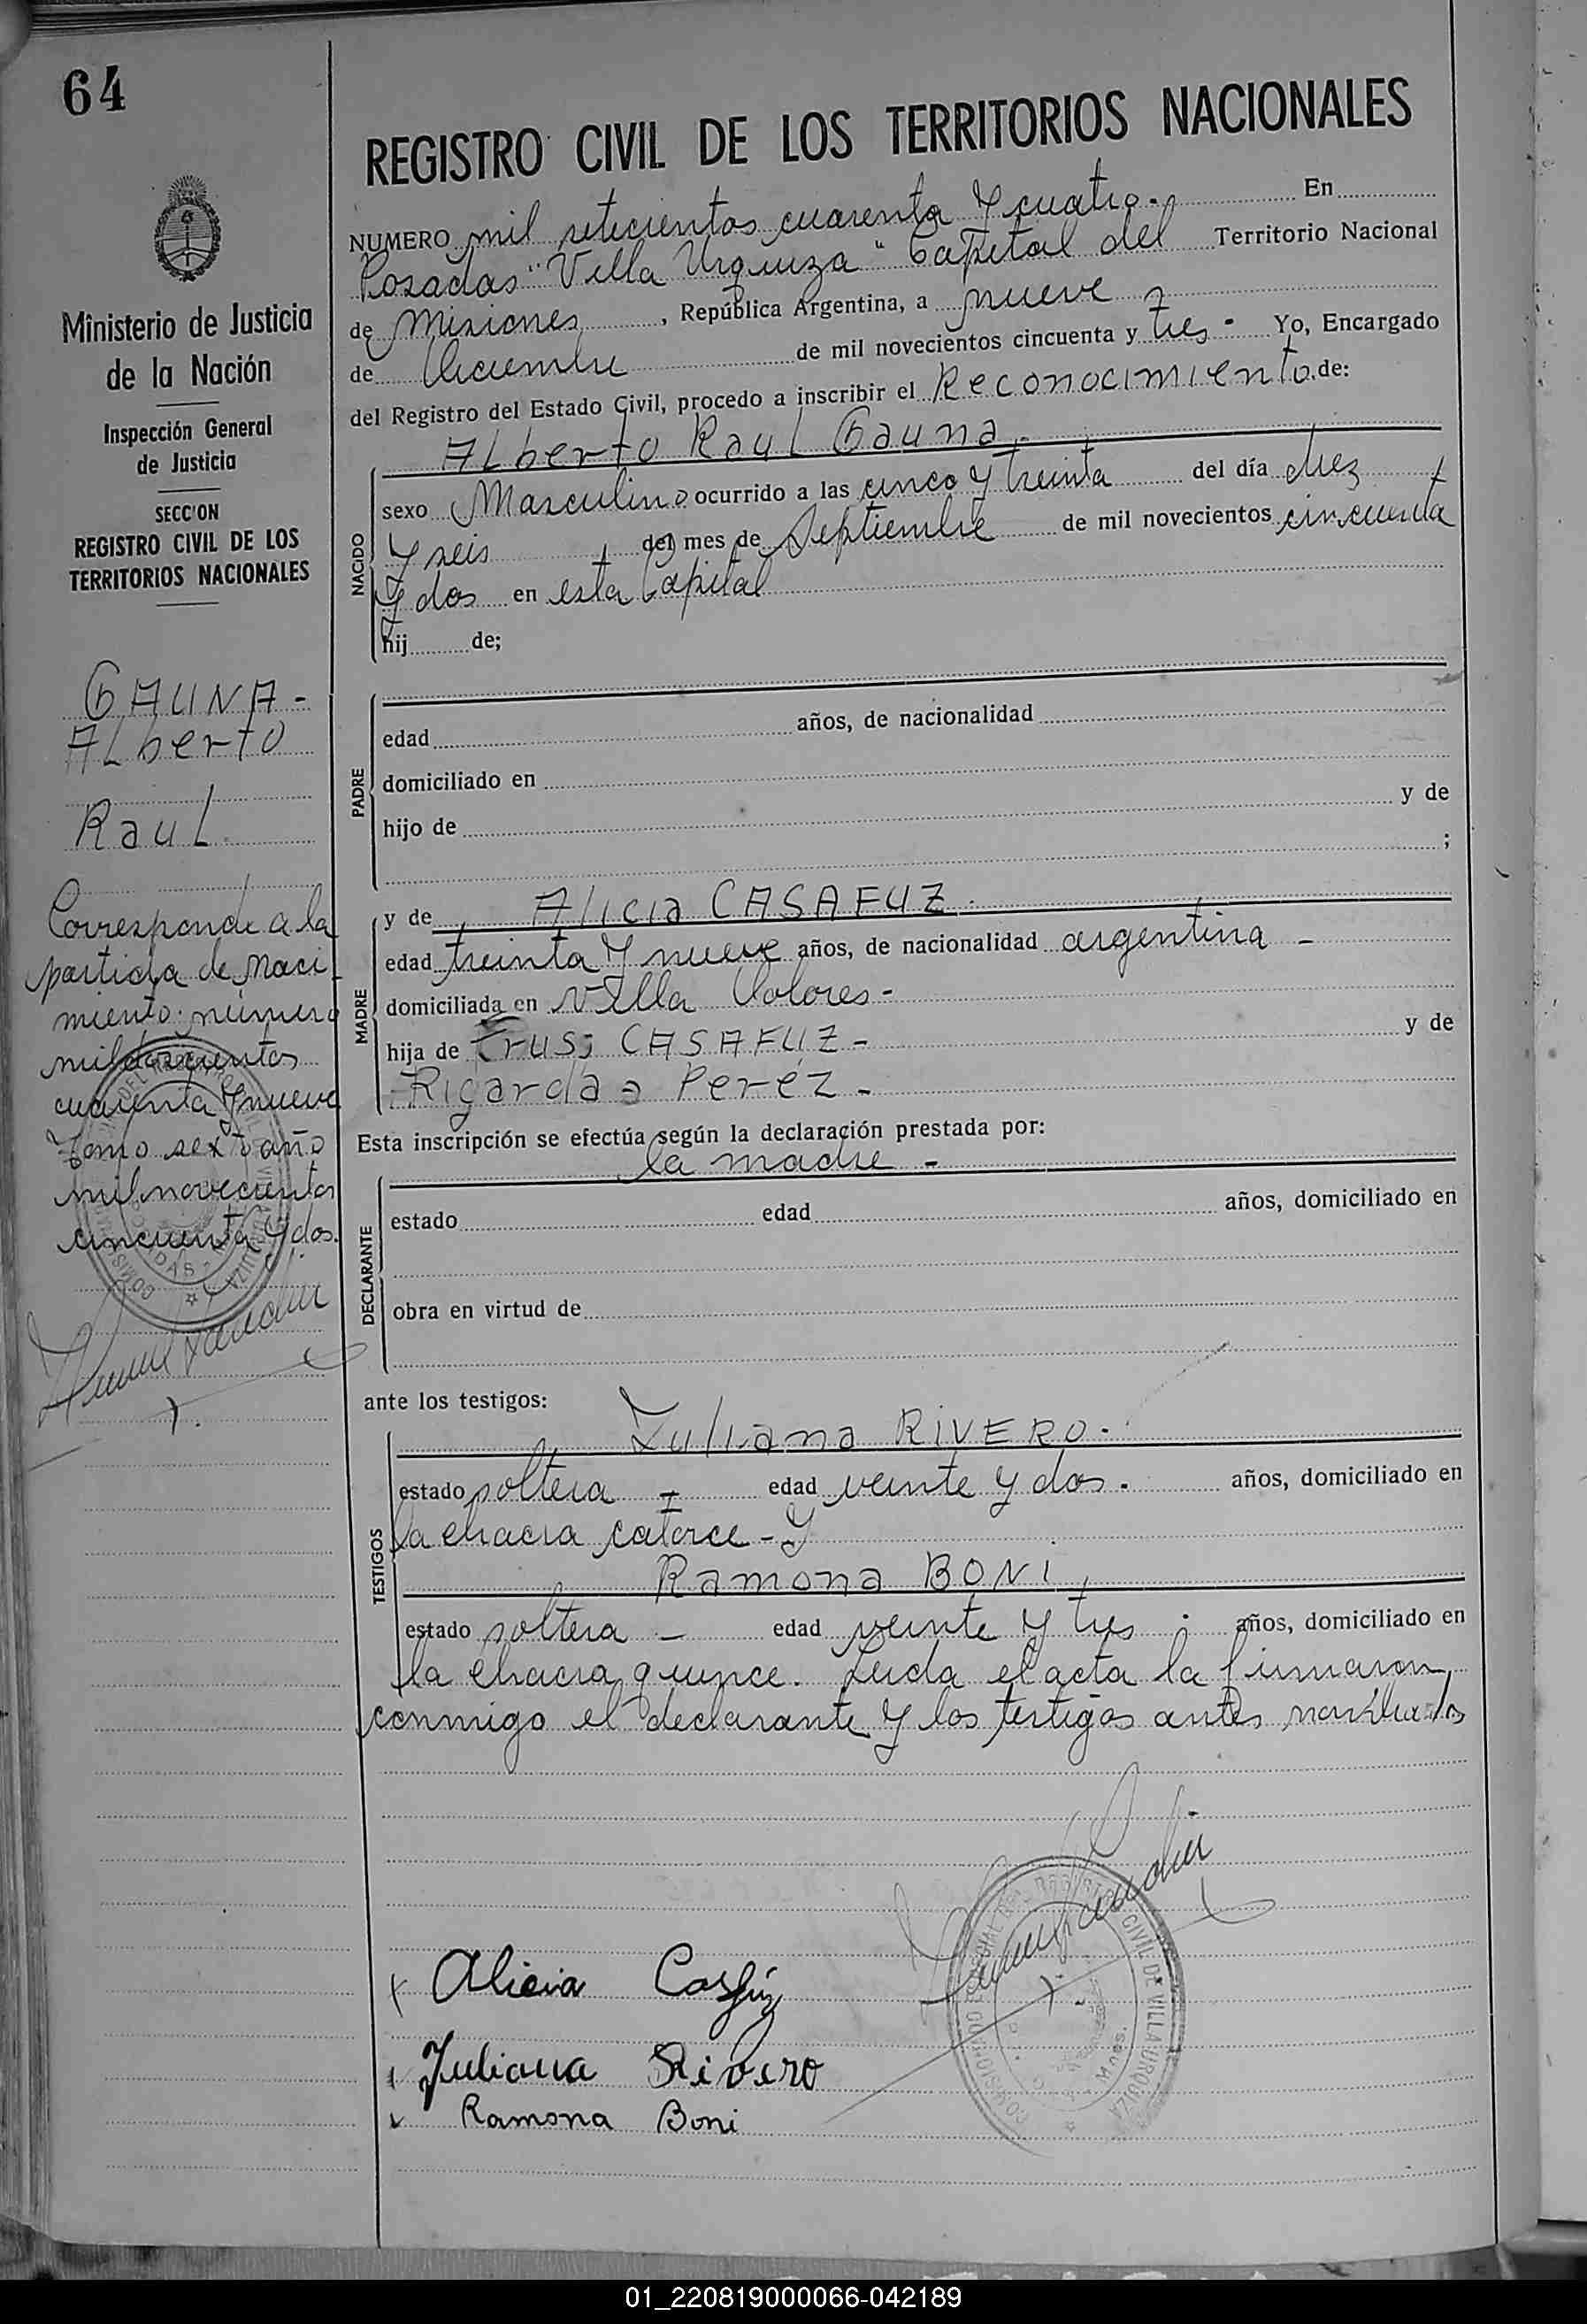 64
Ministerio de Justicia
de la Nación
Inspección General
de Justicia
SECC'ON
REGISTRO CIVIL DE LOS
TERRITORIOS NACIONALES
GAUNA-
Alberto
Raul
Corresponde a la
partida de naci-
miento número
mil doscientos
cuarenta y nueve
Tomo sexto año
mil novecientos
cincuenta y dos.
REGISTRO CIVIL DE LOS TERRITORIOS NACIONALES
NUMERO mil setecientos cuarenta y cuatro.- En
Posadas "Villa Urquiza" Capital del Territorio Nacional
de Misiones, República Argentina, a nueve
de Diciembre de mil novecientos cincuenta y tres- Yo, Encargado
del Registro del Estado Civil, procedo a inscribir el Reconocimiento de:
Alberto Raul Gauna.-
NACIDO
sexo Masculino ocurrido a las cinco y treinta del día diez
y seis del mes de Septiembre de mil novecientos cincuenta
y dos en esta Capital
hij de;
PADRE
edad años, de nacionalidad
domiciliado en
hijo de y de
;
MADRE
y de Alicia CASAFUZ.
edad treinta y nueve años, de nacionalidad argentina -
domiciliada en Villa Dolores-
hija de CASAFUZ- y de
Perez-
Esta inscripción se efectúa según la declaración prestada por:
la madre -
DECLARANTE
estado edad años, domiciliado en
obra en virtud de
ante los testigos:
Juliana RIVERO.
TESTIGOS
estado soltera - edad veinte y dos. años, domiciliado en
la chacra catorce - y
Ramona BONI
estado soltera - edad veinte y tres. años, domiciliado en
la chacra quince. Leida el acta la firmaron
conmigo el declarante y los testigos antes nombrados
Alicia Casfúz
Juliana Rivero
Ramona Boni
REGISTRO CIVIL DE VILLA URQUIZA
01_220819000066-042189